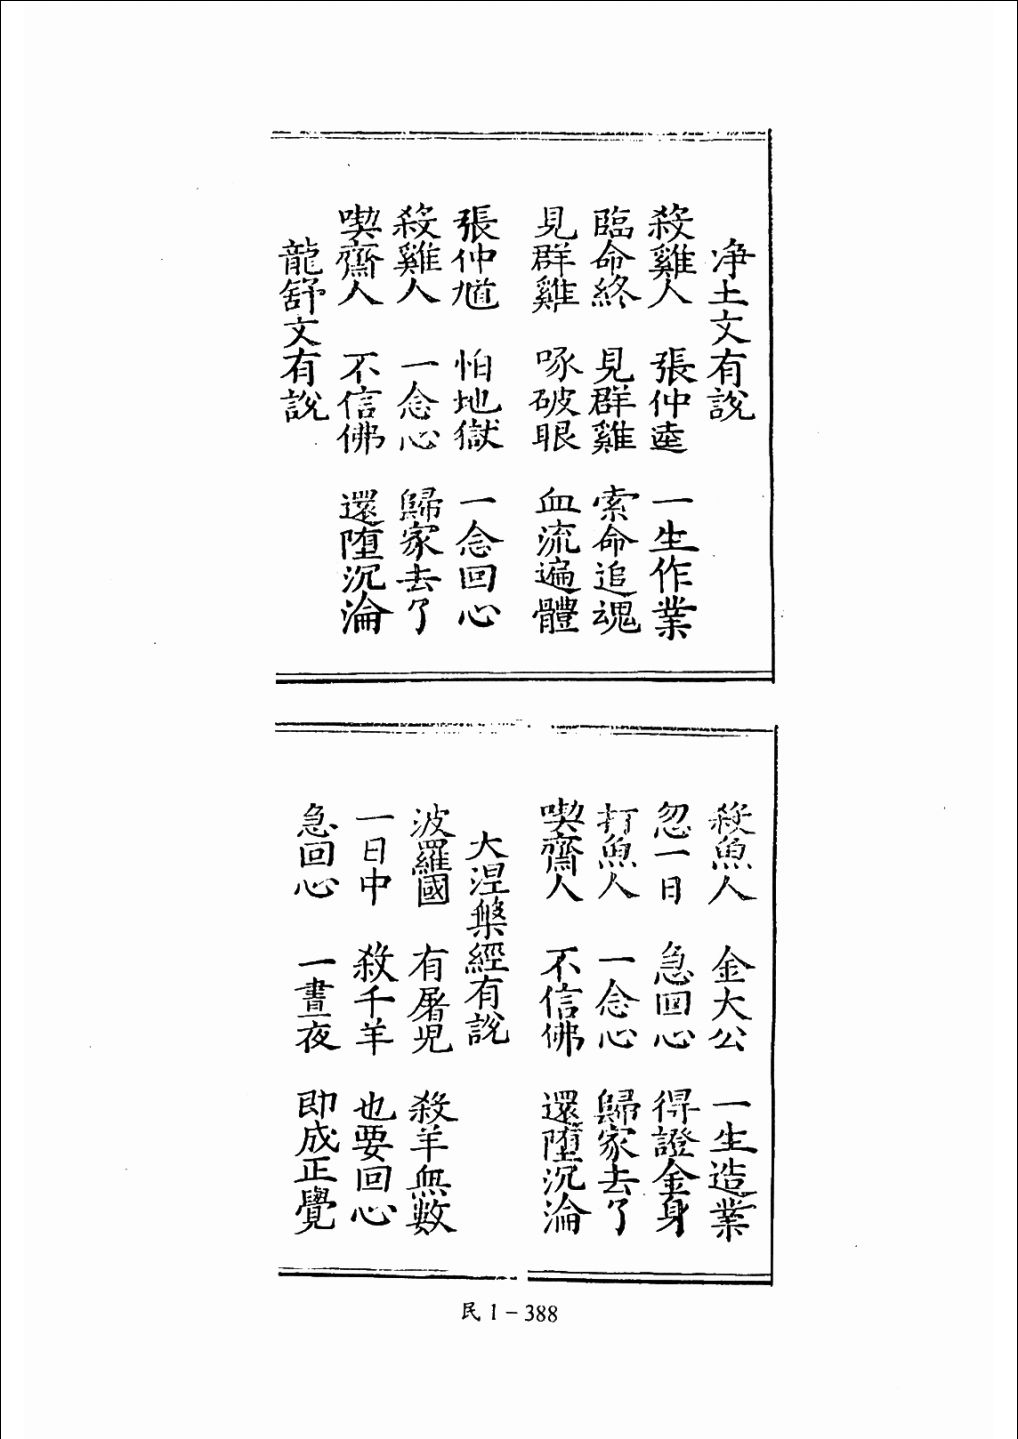 净土文有說
殺雞人　張仲逵　一生作業
臨命終　見群雞　索命追魂
見群雞　啄破眼　血流遍體
張仲馗　怕地獄　一念回心
殺雞人　一念心　歸家去了
喫齋人　不信佛　還堕沉淪
龍舒文有說
殺魚人　金大公　一生造業
忽一日　急回心　得證金身
打魚人　一念心　歸家去了
喫齋人　不信佛　還墮沉淪
大涅槃經有說
波羅國　有屠兒　殺羊無數
一日中　殺千羊　也要回心
急回心　一晝夜　即成正覺
民 1－388